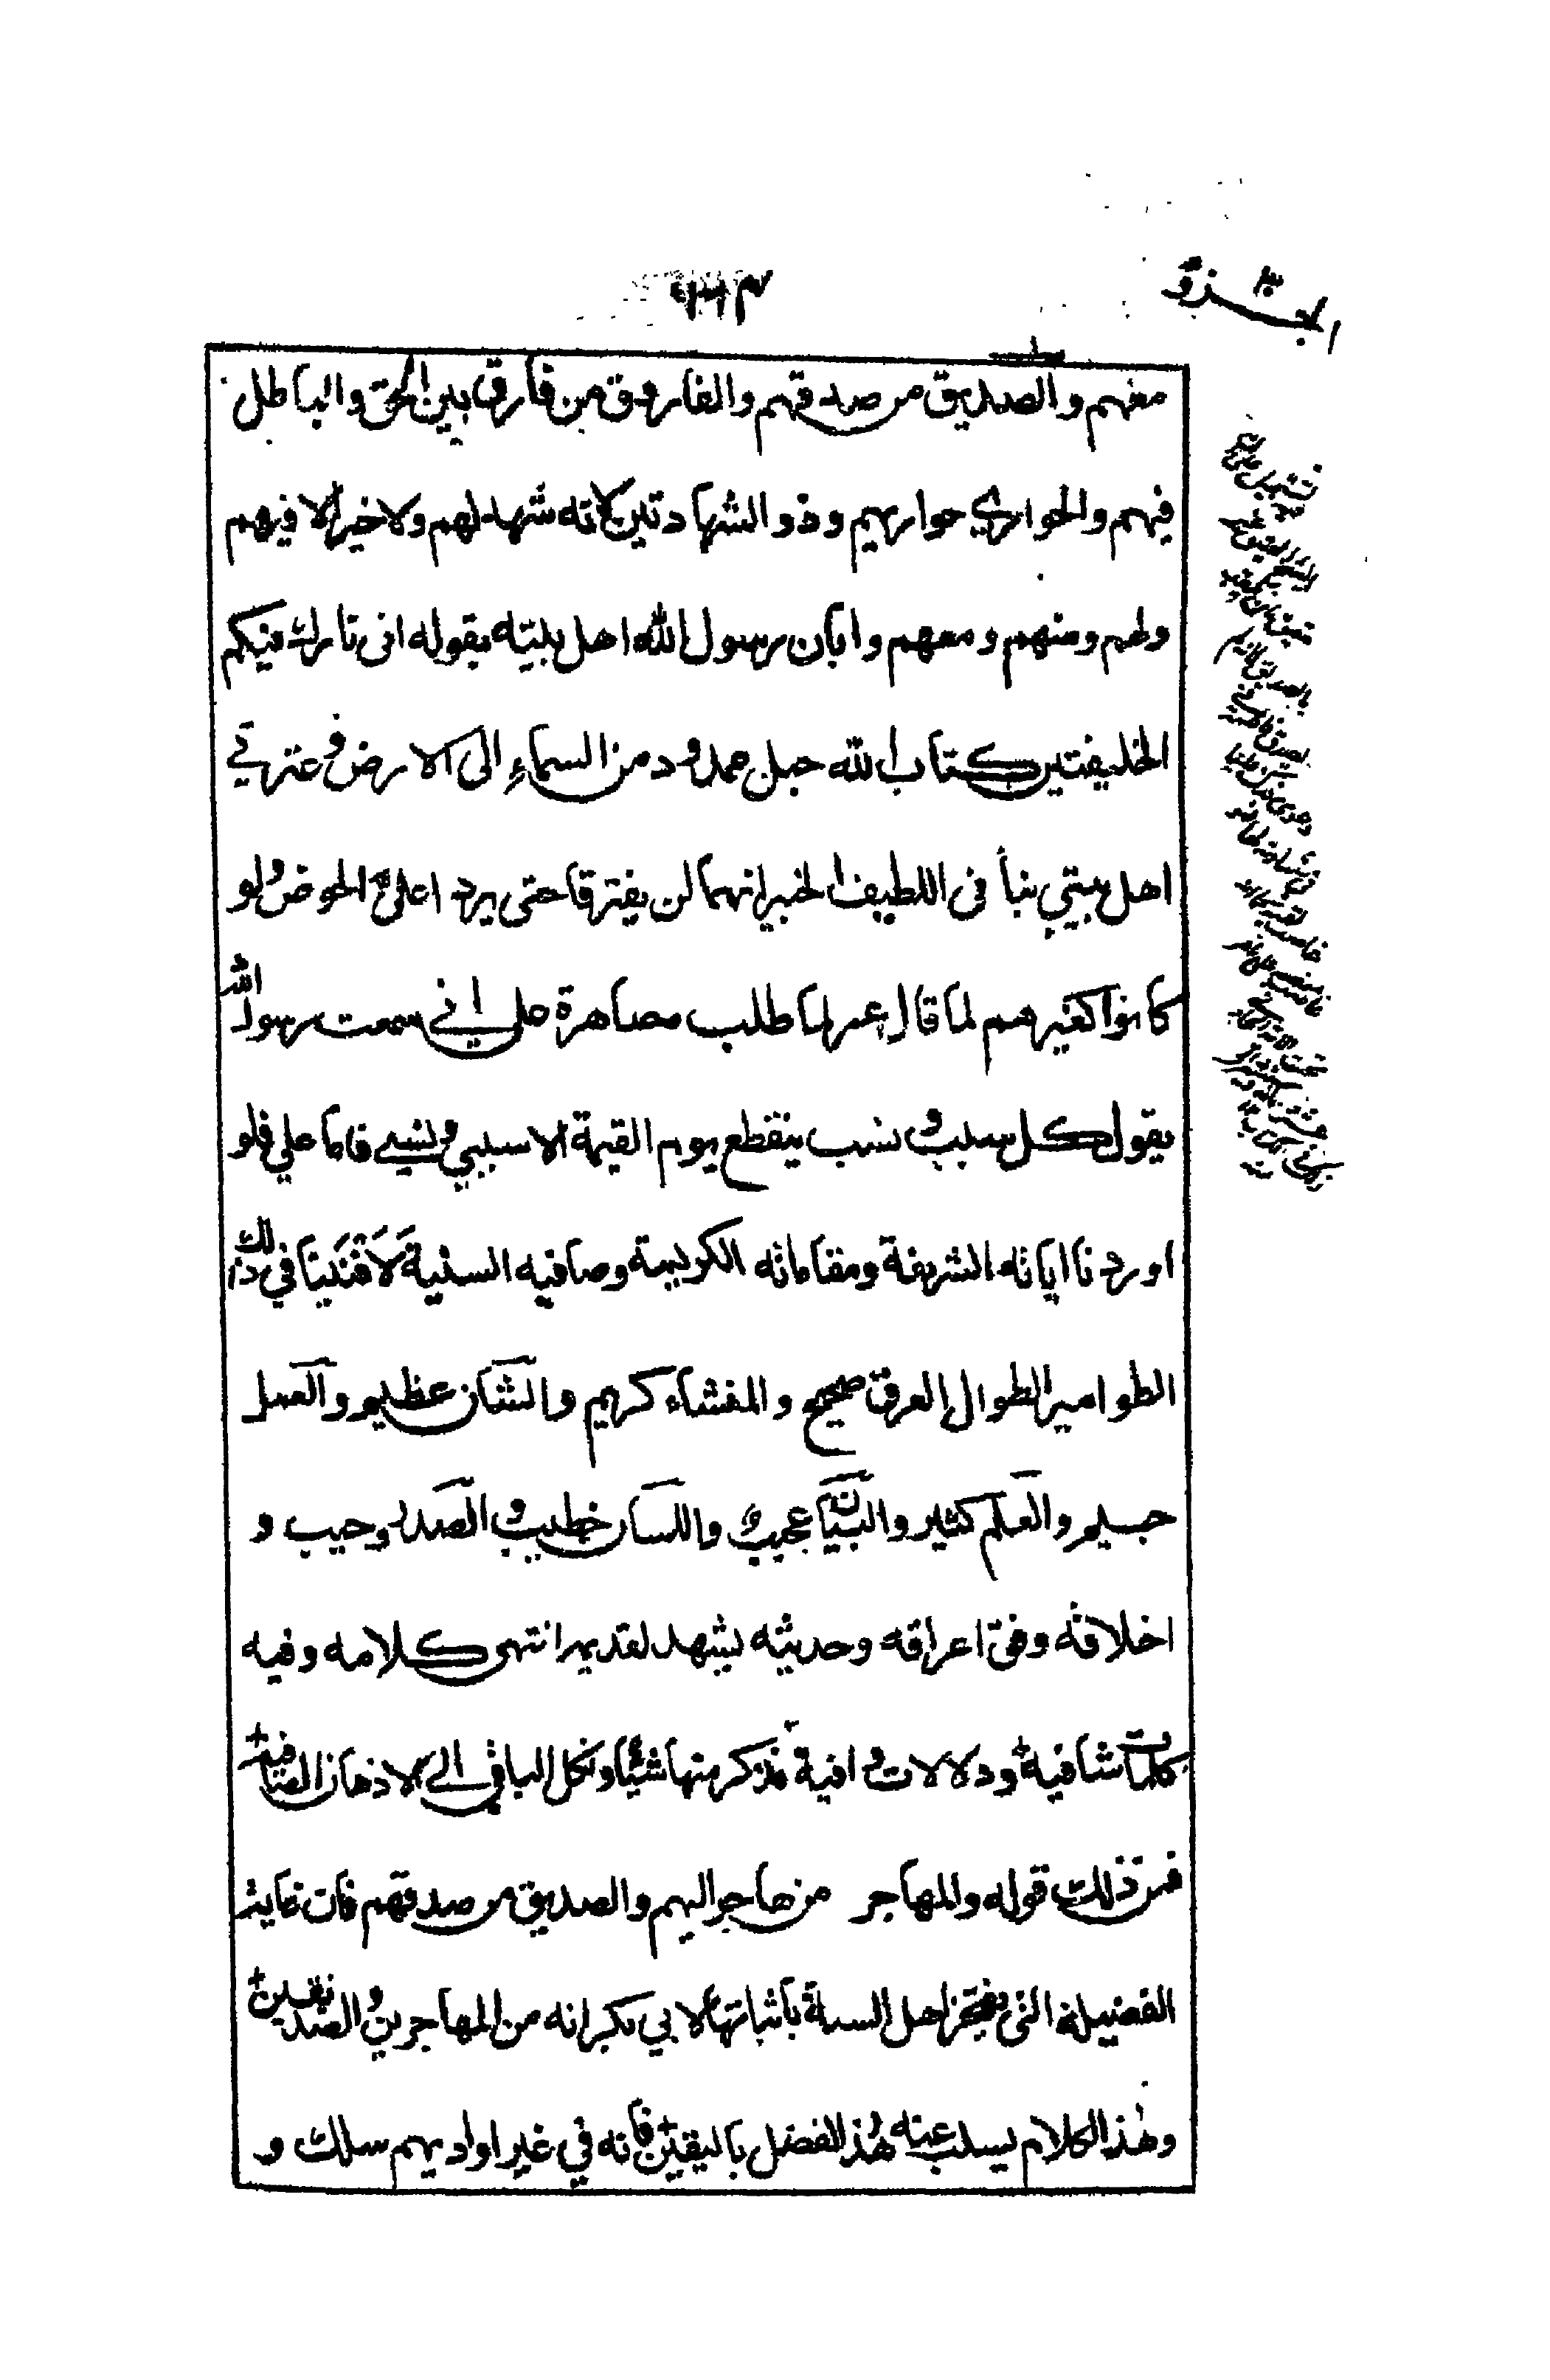 معهم والصديق من صدقهم والفاروق من فارق بين الحق والباطل
فيهم والحواري حواريهم وذو الشهادتين لانه شهد لهم ولا خير الا فيهم
ولهم ومنهم ومعهم وابان رسول الله اهل بيته بقوله انى تارك فيكم
الخليفتين كتاب الله حبل ممدود من السماء الى الارض وعترتي
اهل بيتي نبأنى اللطيف الخبير انهما لن يفترقا حتى يردا علىّ الحوض ولو
كانوا كغيرهم لما قال عمر لما طلب مصاهرة على انى سمعت رسول الله
يقول كل سبب و نسب ينقطع يوم القيمة الا سببي و نسبي فاما علي فلو
اوردنا اياته الشريفة ومقاماته الكريمة ومناقبه السنية لافنينا في ذلك
الطوامير الطوال العرق صحيح والمنشاء كريم والشان عظيم والعمل
جسيم والعلم كثير والبيان عجيب واللسان خطيب و الصدر رحيب و
اخلاقه وفق اعراقه وحديثه يشهد لقديمه انتهى كلامه وفيه
كلمات شافية ودلالات وافية نذكر منها شيئا ونكل الباقى الى الاذهان الصافية
فمن ذلك قوله والمهاجر من هاجر اليهم والصديق من صدقهم فان غاية
الفضيلة التى يفتخر اهل السنة باثباتها لابي بكر انه من المهاجرين و الصديقين
وهذا الكلام يسلب عنه هذا الفضل باليقين فانه في غير اواديهم سلك و